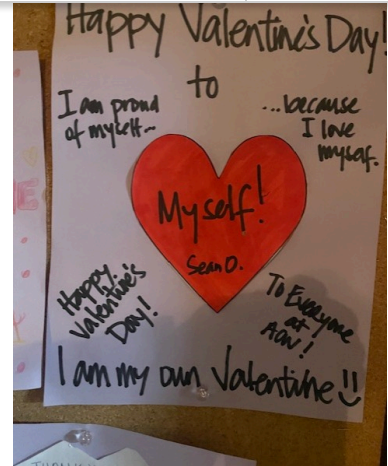 Happy Valentine's Day!
to
I am proud
of myself...
...because
I love
myself.
Myself!
Sean D.
Happy
Valentine's
Day!
To Everyone
at
AOW!
I am my own Valentine